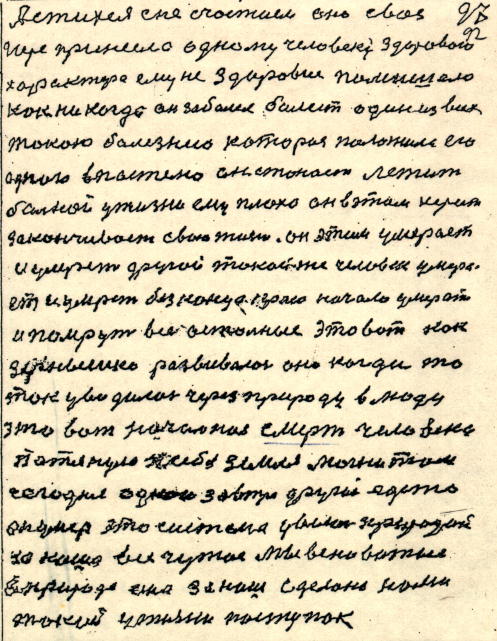 сне счастием оно своз 97
92
горе принесло одному человеку здорового
характера ему не здоровие помешало
как никогда он забалел балеет один из вих
такою балезнию которая положила его
одного впастено он стонает летит
балной у жизни ему плохо он вэтом
заканчивает свою жизн. он этим умерает
и умрет другой такой же человек умера-
ет и умрет без конца краю начало умерат
и помрут все осталные это вот как
зернышко развивалос оно когда то
ток уводилос через природу в люду
это вот началная смерт человека
потянула ксебе земля магнитом
сегодня одного завтра другой а ето
он умер это система увсех природой
за наше все чужое мы веноватые
в природе она за наш сделано нами
такой у жизни поступок